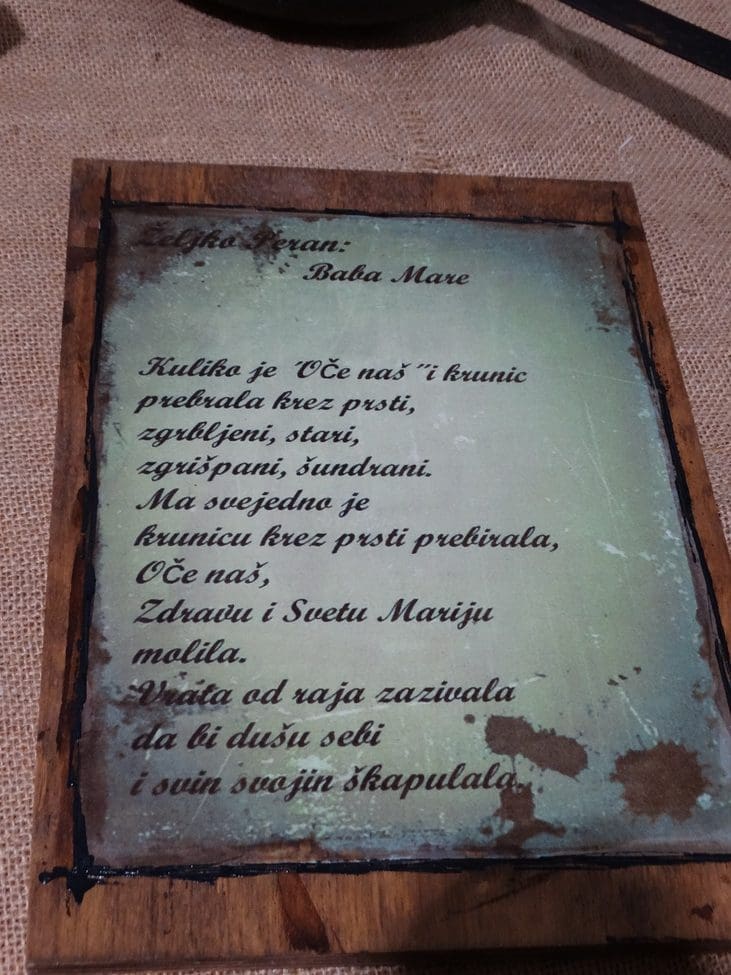 Željko Peran:
Baba Mare
Kuliko je "Oče naš" i krunic
prebrala krez prsti,
zgrbljeni, stari,
zgrišpani, šundrani.
Ma svejedno je
krunicu krez prsti prebirala,
Oče naš,
Zdravu i Svetu Mariju
molila.
Vrata od raja zazivala
da bi dušu sebi
i svin svojin škapulala.